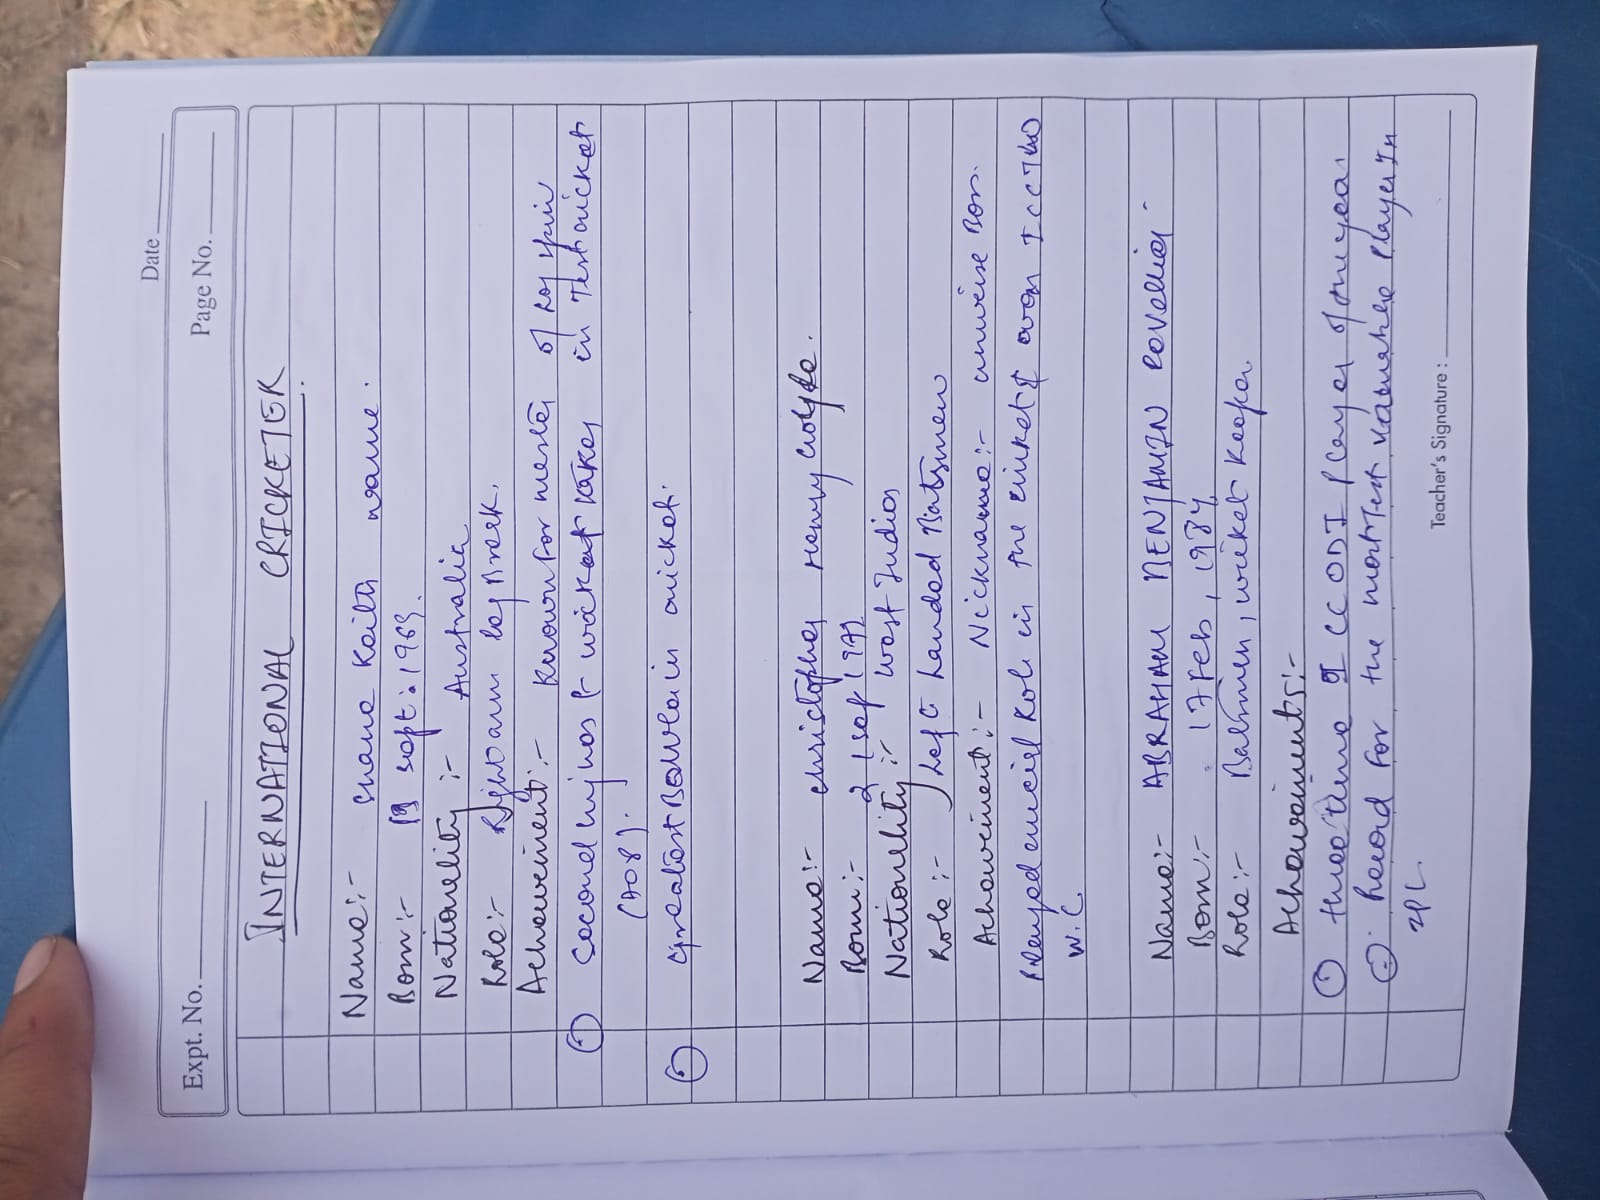 Date
Expt. No.
Page No.
INTERNATIONAL CRICKETER
Name:- Shane Keith warne.
Born:- 13 sept. 1969.
Nationality:- Australia
Role:- Right arm leg break.
Achievement:- Known for master of leg spin
① Second highest wicket taker in Test cricket
(708).
② Greatest Bowler in cricket.
Name:- christopher Henry Gayle.
Born:- 21 sep 1979
Nationality:- West Indies
Role:- Left handed Batsmen
Achievement:- Nickname:- universe Bos.
Played crucial Role in the cricket won ICC Two
W.C.
Name:- ABRAHAM BENJAMIN Devellier
Born:- 17 Feb, 1984
Role:- Batsmen, wicket keeper.
Achievements:-
① three time ICC ODI player of the year.
② Record for the most Test Valuable Player In
IPL
Teacher's Signature: